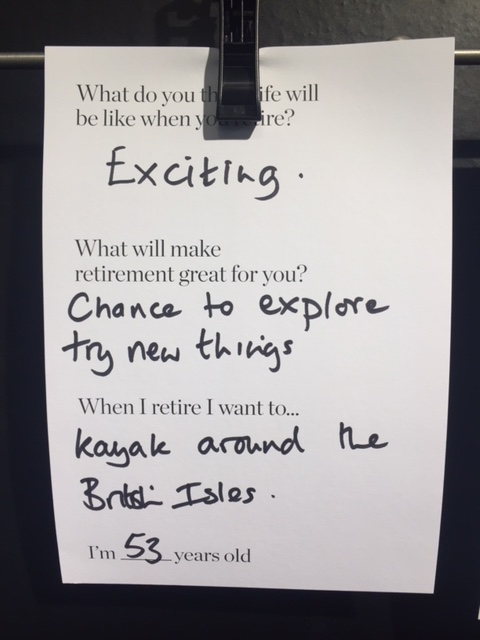 What do you th ife will
be like when yo retire?
Exciting.
What will make
retirement great for you?
Chance to explore
try new things
When I retire I want to...
kayak around the
British Isles.
I'm 53 years old